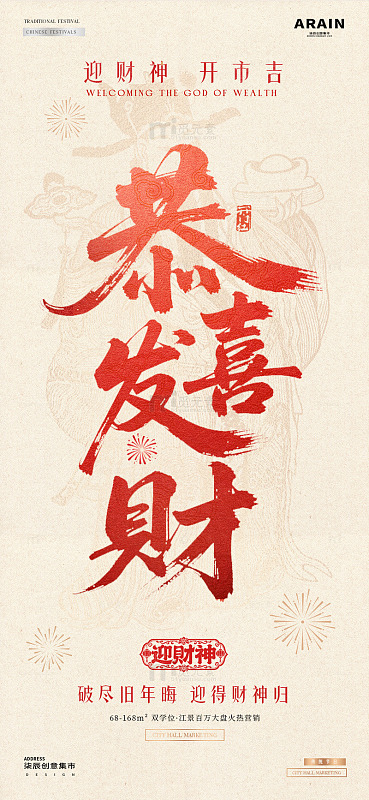 TRADITIONAL FESTIVAL
CHINESE FESTIVALS
ARAIN
迎财神 开市吉
WELCOMING THE GOD OF WEALTH
恭
喜
发
财
迎財神
破尽旧年晦 迎得财神归
68-168m² 双学位·江景百万大盘火热营销
CITY HALL MARKETING
ADDRESS
柒辰创意集市
DESIGN
CITY HALL MARKETING